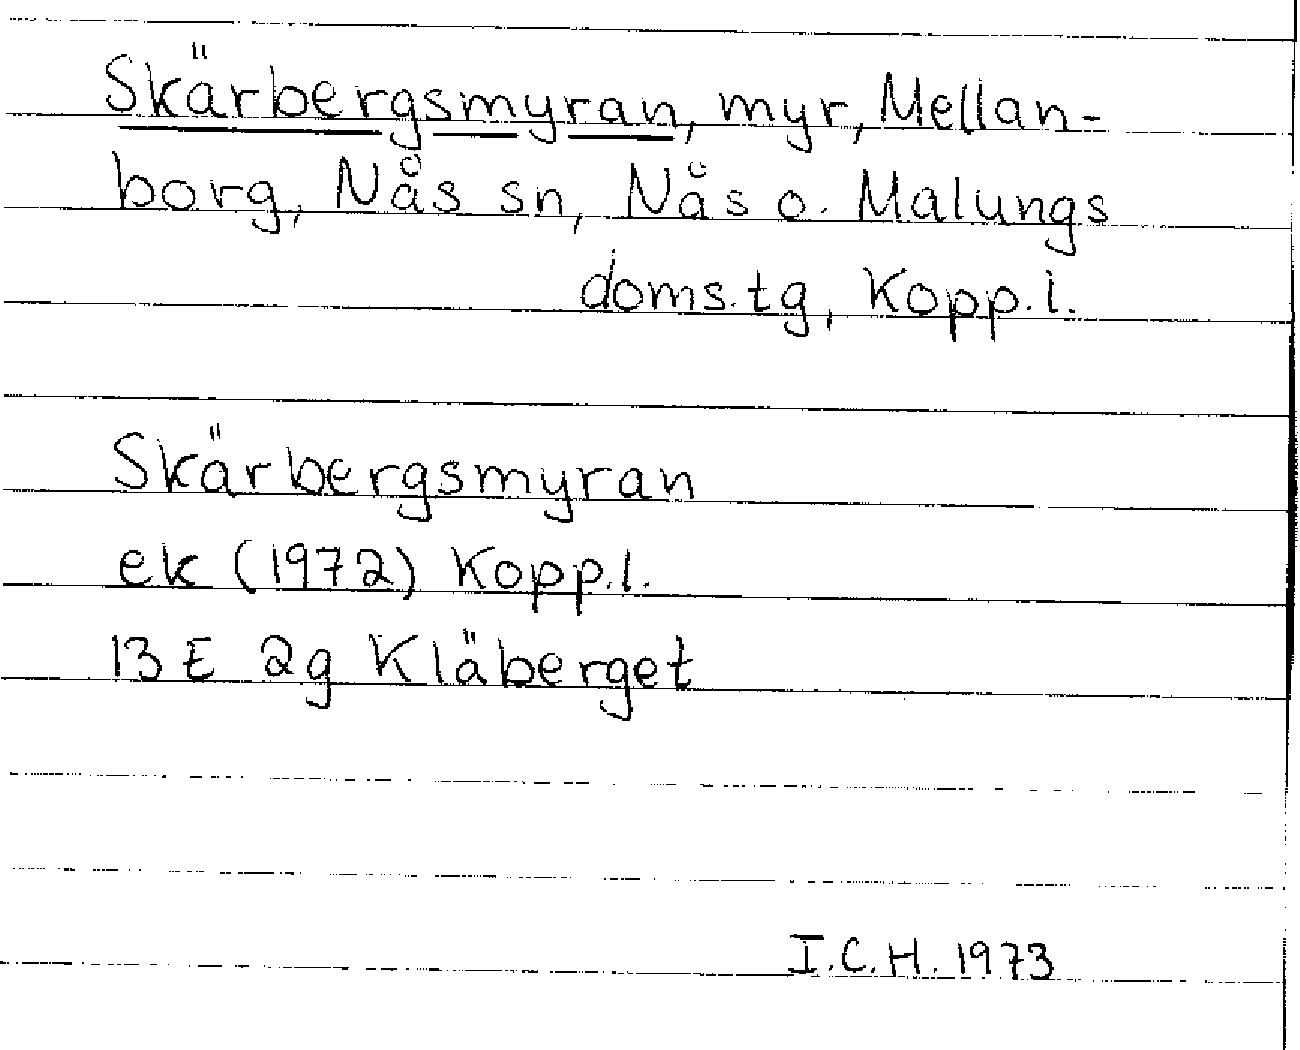 Skärbergsmyran, myr, Mellan-
borg, Nås sn, Nås o. Malungs
doms.tg, Kopp.l.
Skärbergsmyran
ek (1972) Kopp.l.
13 E 2g Kläberget
I.C.H. 1973